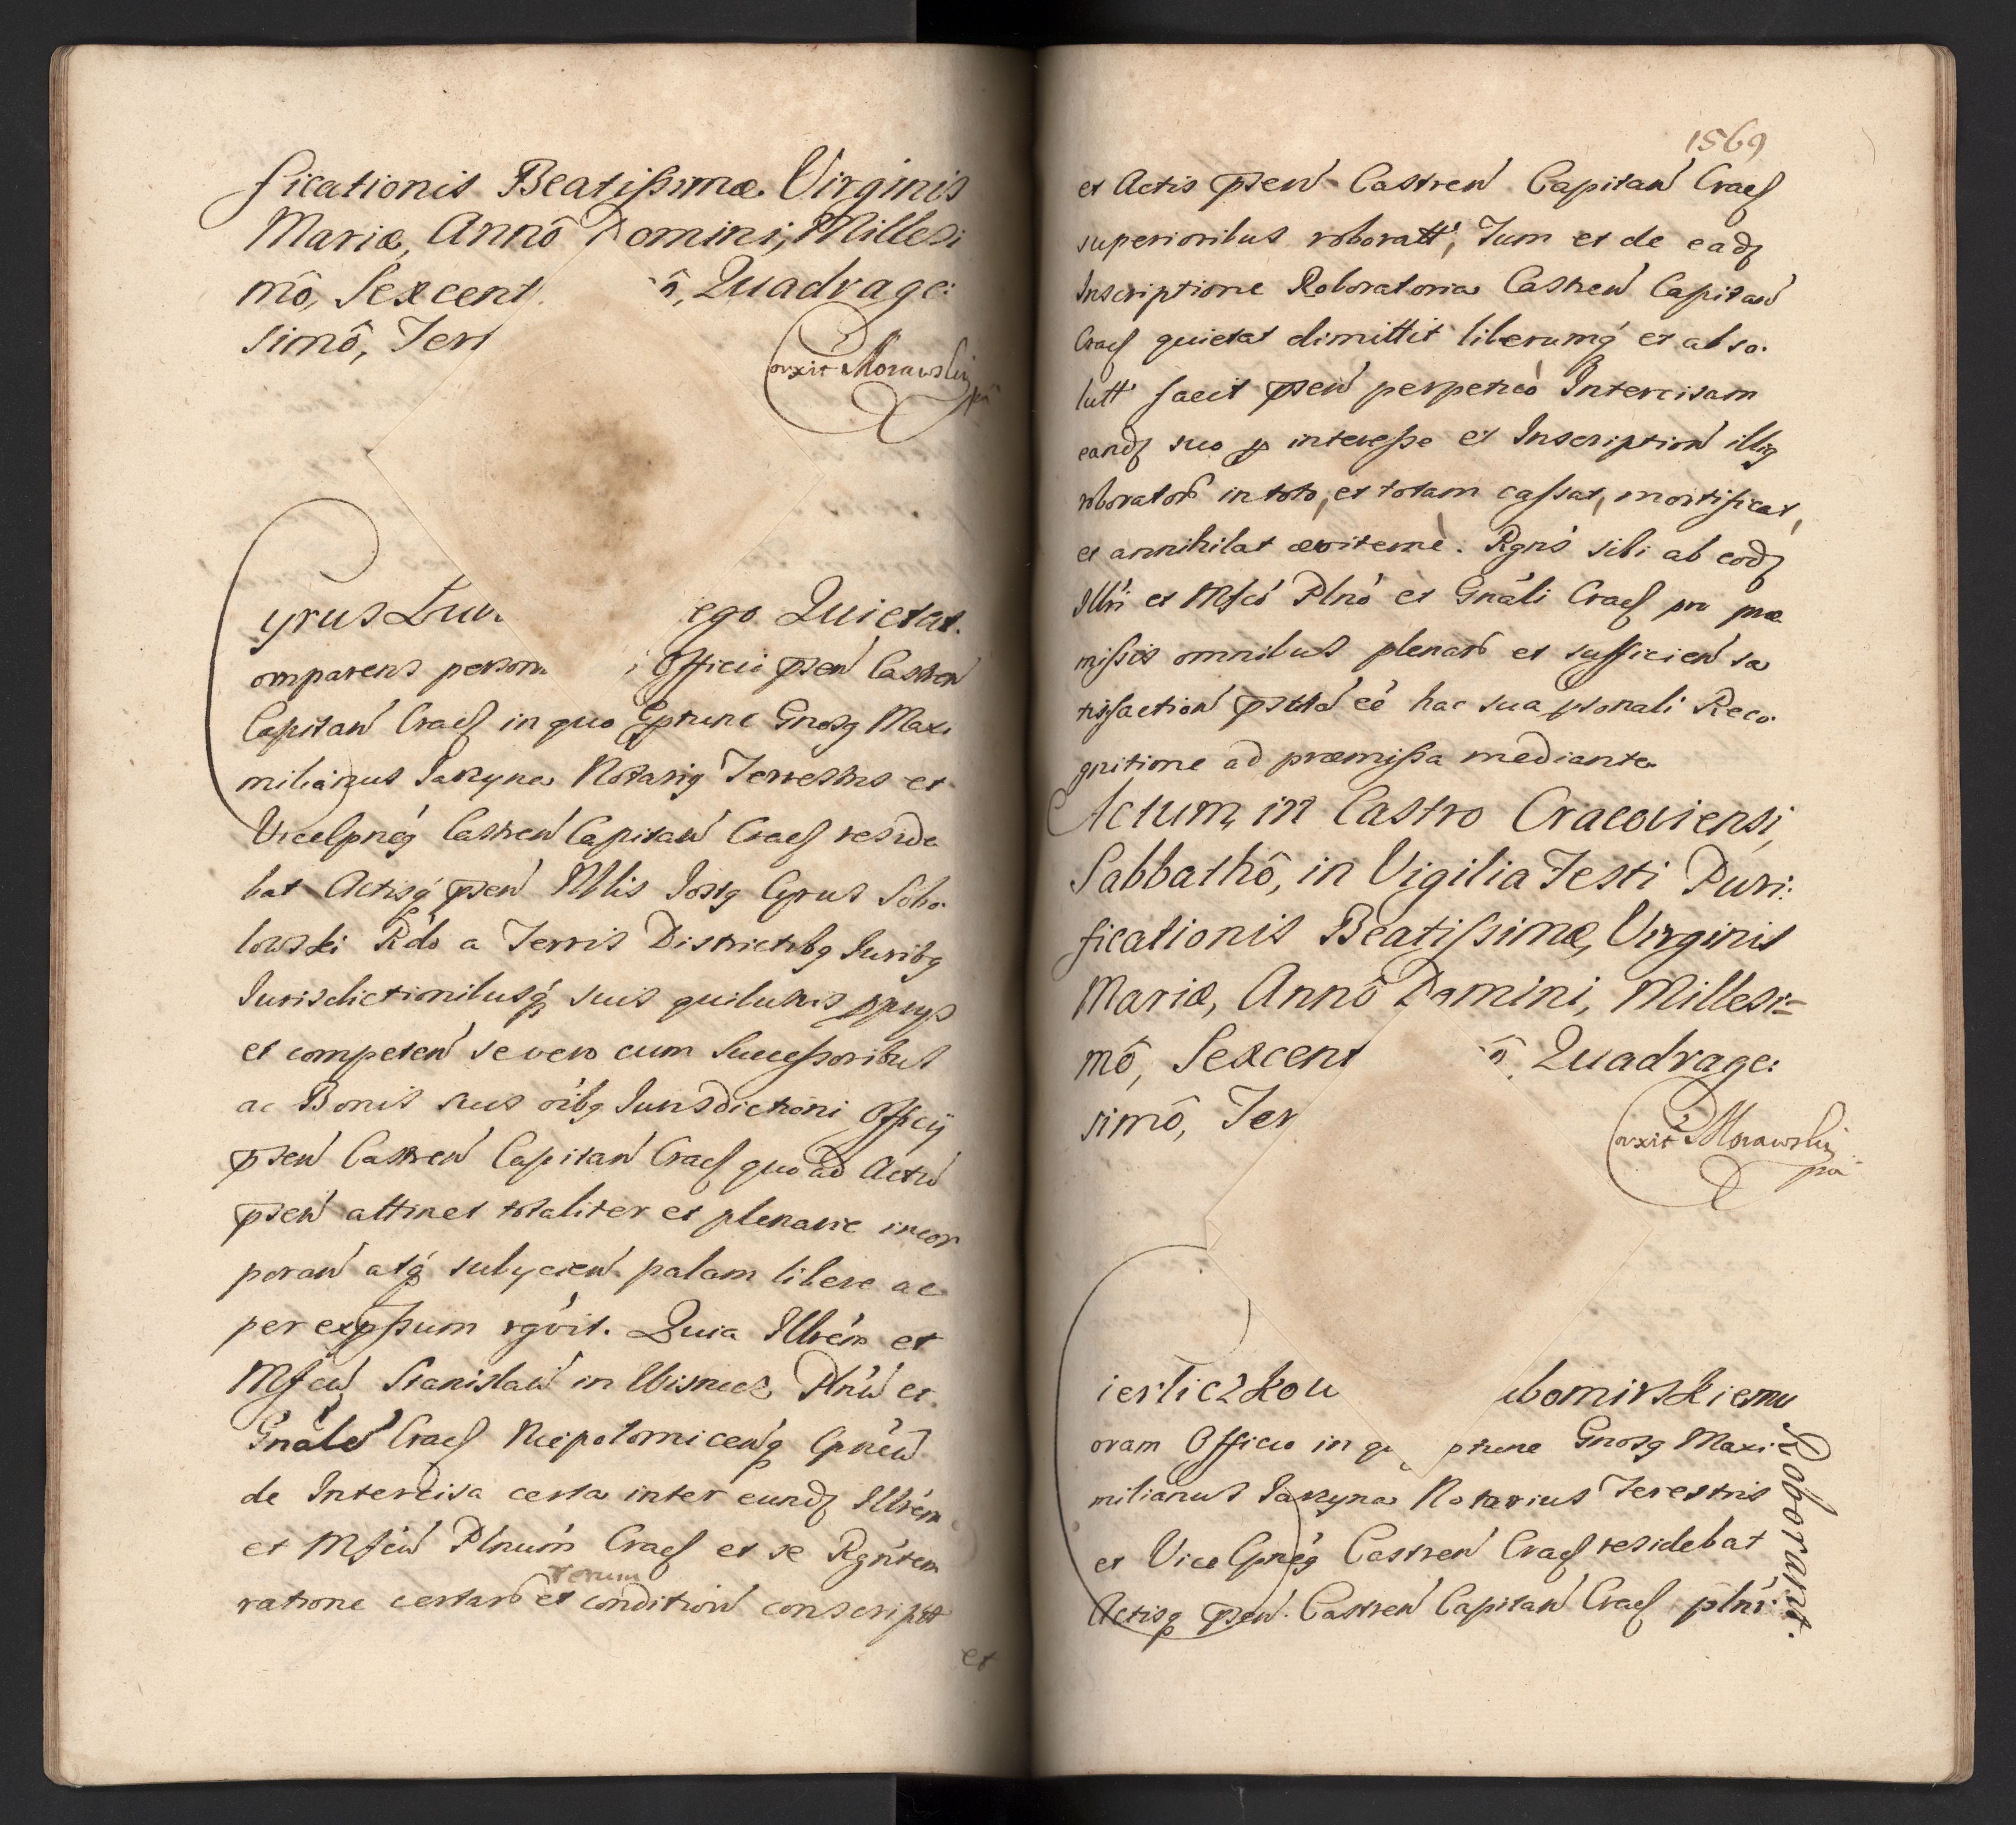 ficationis Beatissimæ Virginis
Mariæ, Annô Domini, Millesi
mô, Sexcent ô, Quadrage:
simô, Ter
Morawski
yrus Lu ego Quietat.
omparens person Officii psen Castren
Capitan Cracs in quo Maxi
milianus Notariq Terrestris et
Castren Capitan Cracs reside
bat Actisq psen Nblis Cyrus Sobo
lowski Rdo a Terris Districtibq Juribq
Jurisdictionibusq suis quibusvis pprys
et competen se vero cum Successoribus
ac Bonis suis oibq Jurisdictioni Officij
psen Castren Capitan Cracs quo ad Actu
psen attinet totaliter et plenarie incor
poran atq subycien palam libere ac
per expssum rgvit. Quia Illrem et
Mfcu Stanislau in Wisnicz Plnu et
Gnale Cracs Niepolomicenq
de Intercisa certa inter eundz Illrem
et Mfcu Plnum Cracs et se Rgntem
rerum
ratione certar et condition conscript
et
1569
et Actis psen Castren Capitan Cracs
superioribus roboratt, Tum et de eadz
Inscriptione Roboratoria Castren Capitan
Cracs quietat dimittit liberumq et abso
lutt facit psen perpetuo Intercisam
eandz suo interesse et Inscription illiq
roborator in toto, et totam cassat, mortificat,
et annihilat æviterne. Rgns sibi ab eodz
Illri et Mfco Plno et Gnali Cracs præ
missis omnibus plenar et sufficien sa
tisfaction hac sua psonali Reco
gnitione ad præmissa mediante
Actum in Castro Cracoviensi,
Sabbathô, in Vigilia Festi Puri:
ficationis Beatissimæ, Virginis
Mariæ, Annô Domini, Millesi=
mô, Sexcent ô Quadrage:
simô, Ter
Morawski
ierliczkou ubomirskiemu
oram Officio in q ptunc Gnosq Maxi
milianus Notarius Terestris
et Vice Castren Cracs residebat
Actisq psen Castren Capitan Cracs plnr
Roborant.